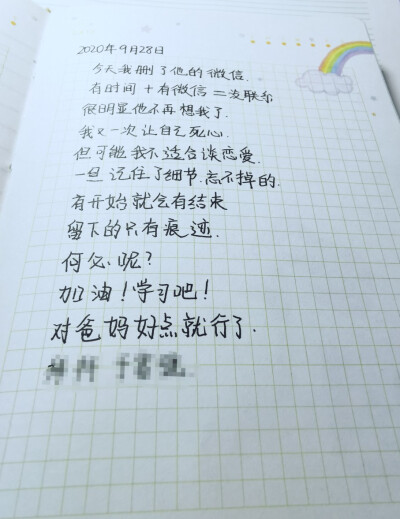 2020年9月28日
今天我删了他的微信.
有时间+有微信=没联系
很明显他不再想我了.
我又一次让自己死心.
但可能我不适合谈恋爱.
一旦记住了细节.忘不掉的.
有开始就会有结束
留下的只有痕迹.
何必呢?
加油!学习吧!
对爸妈好点就行了.